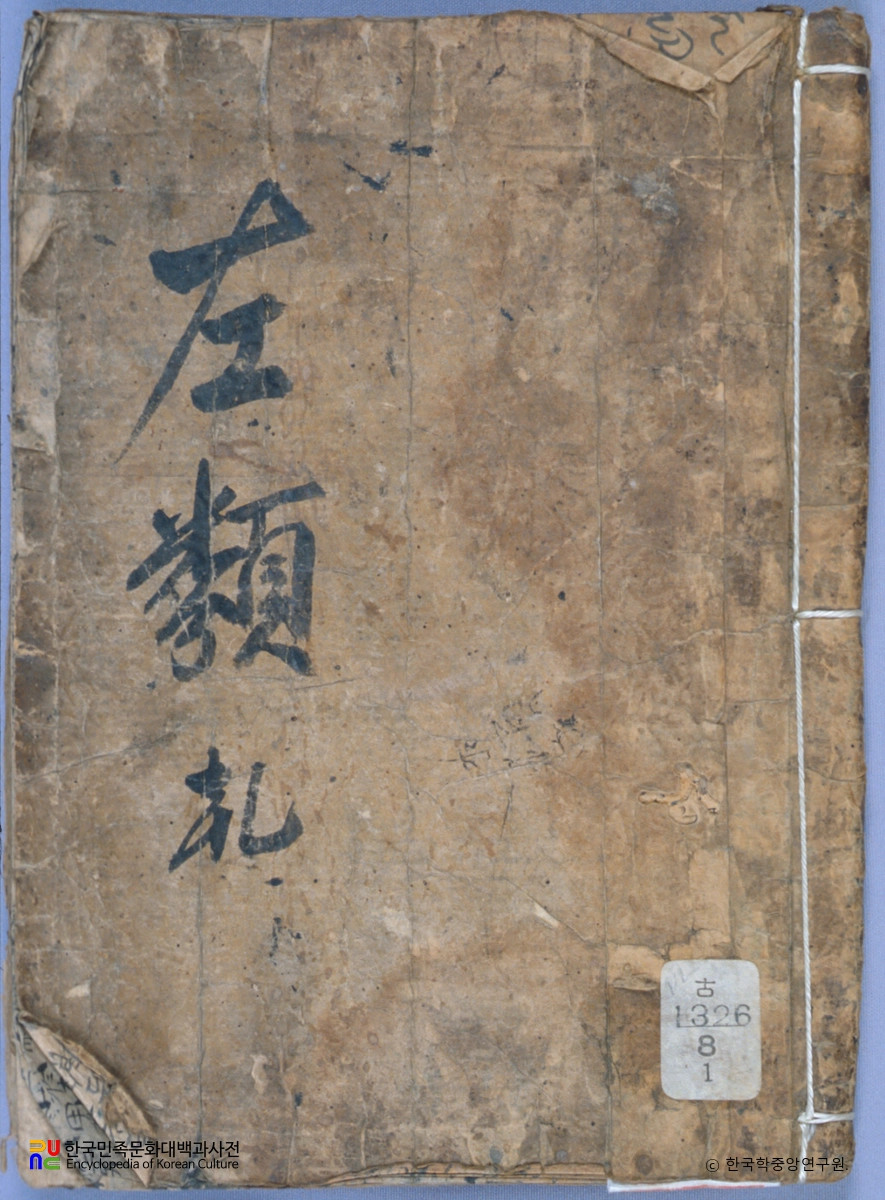 左類
札
古
1326
8
1
한국민족문화대백과사전
Encyclopedia of Korean Culture
© 한국학중앙연구원